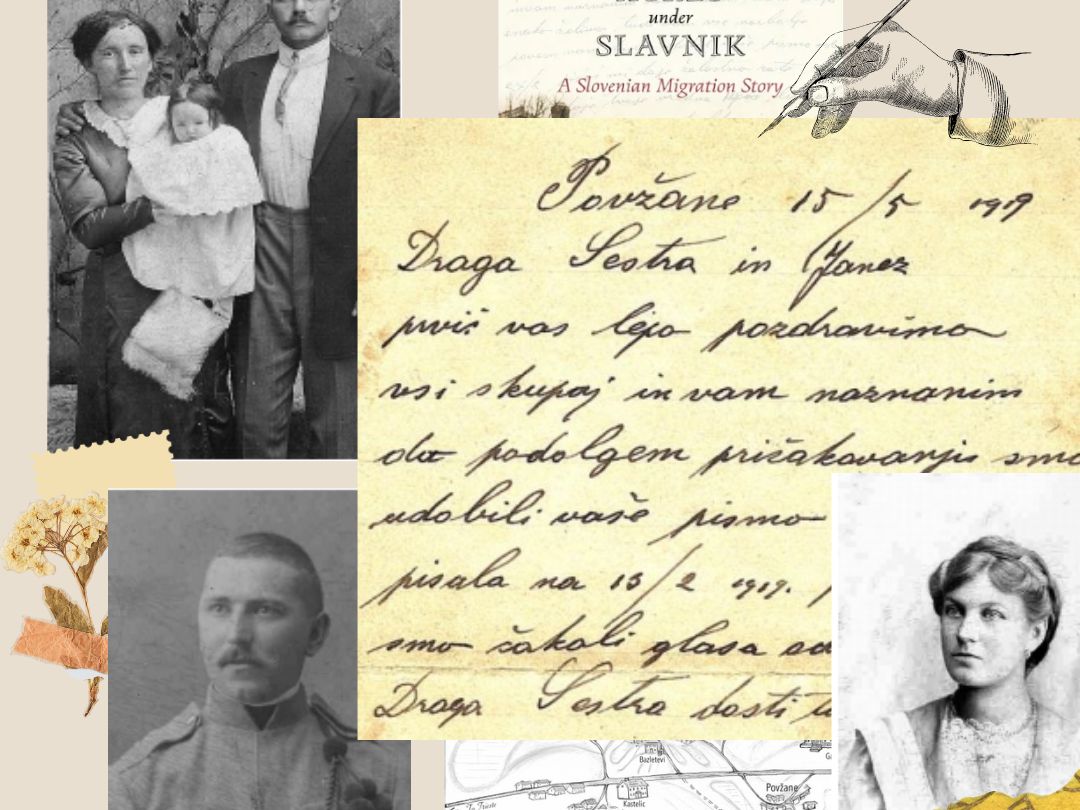 under
SLAVNIK
A Slovenian Migration Story
Povžane 15/5 1919
Draga Sestra in Janez
prvič vas lepo pozdravimo
vsi skupaj in vam naznanim
da podolgem pričakovanji smo
udobili vaše pismo
pisala na 13/2 1919.
smo čakali glasa od
Draga Sestra dosti
Bazletevi
Kastelic
Povžane
To Trieste